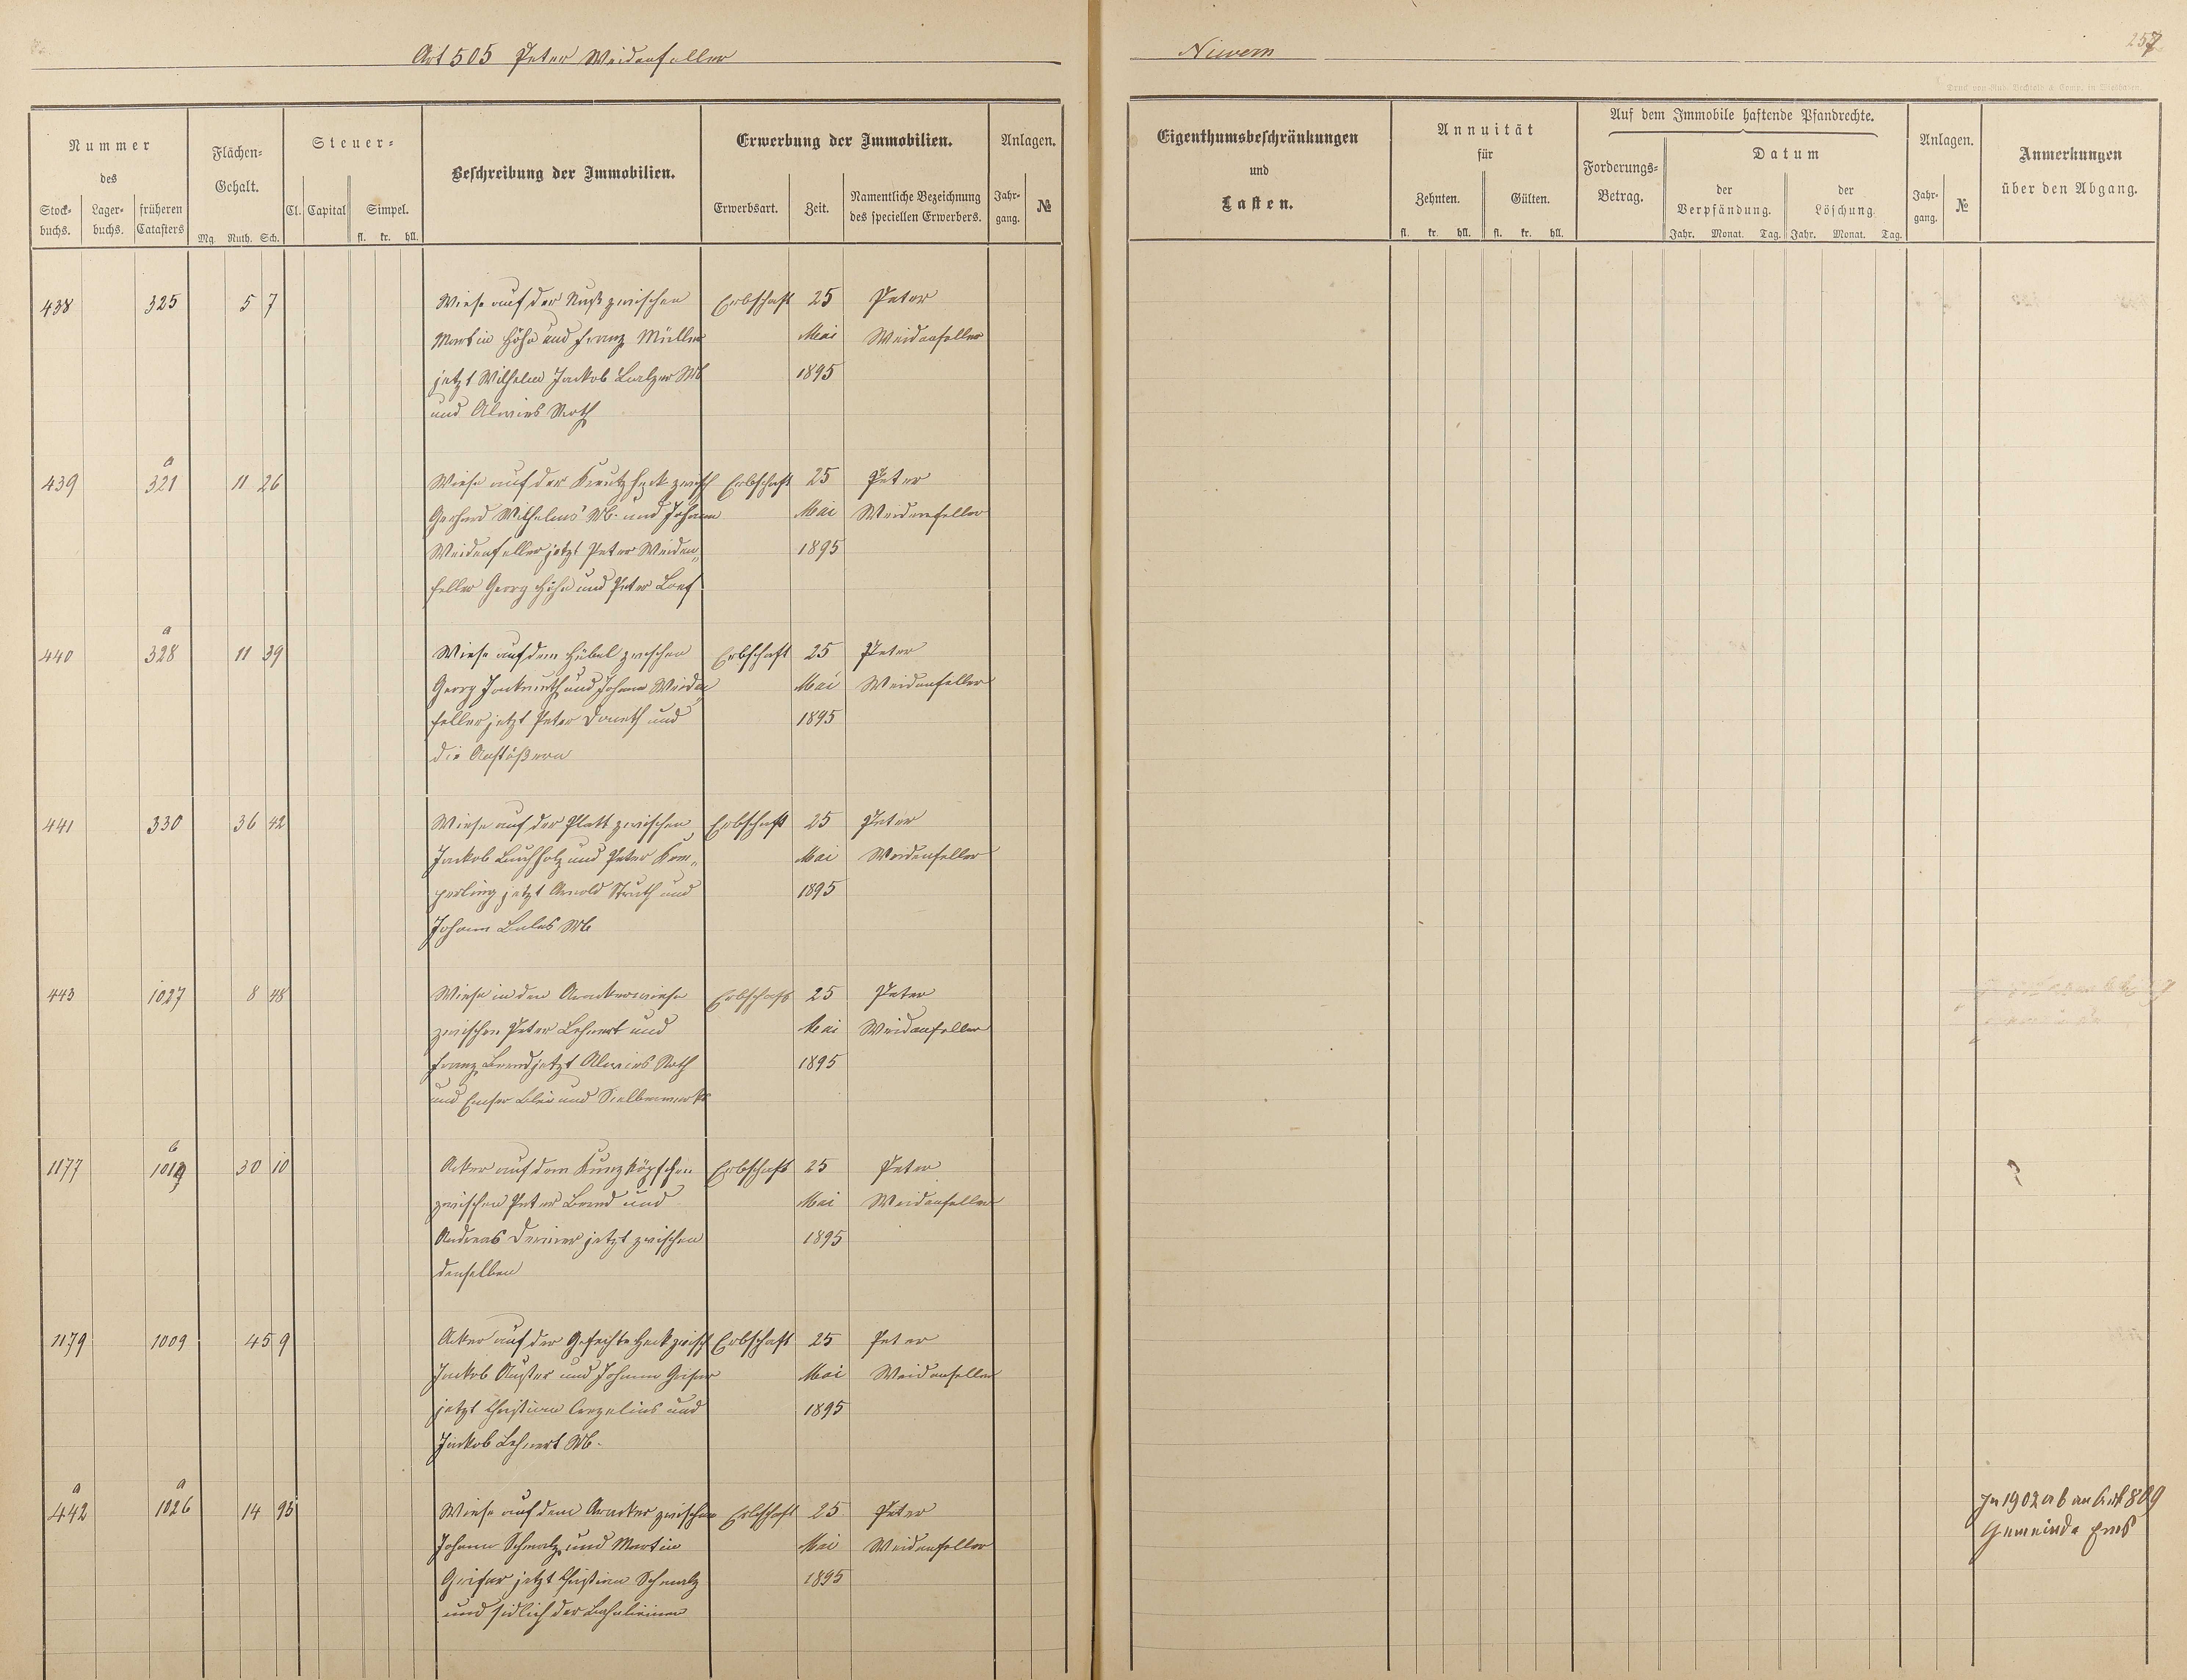 Art 505 Peter Weidenfeller
Nievern
257
Druck von Rud. Bechtold & Comp. in Wiesbaden.
Nummer
des
Stock-
buchs.
Lager-
buchs.
früheren
Catasters
Flächen-
Gehalt.
Mg. Ruth. Sch.
Steuer-
Cl. Capital Simpel.
fl. kr. hll.
Beschreibung der Immobilien.
Erwerbung der Immobilien.
Erwerbsart. Zeit.
Namentliche Bezeichnung
des speciellen Erwerbers.
Anlagen.
Jahr-
gang.
№
Eigenthumsbeschränkungen
und
Lasten.
Annuität
für
Zehnten. Gülten.
fl. kr. hll. fl. kr. hll.
Auf dem Immobile haftende Pfandrechte.
Forderungs-
Betrag.
Datum
der
Verpfändung.
der
Löschung
Jahr. Monat. Tag. Jahr. Monat. Tag.
Anlagen.
Jahr-
gang.
№
Anmerkungen
über den Abgang.
438 325 5 7 Wiese auf der zwischen Erbschaft 25 Peter
Martin Höhn und Franz Müller Mai Weidenfeller
jetzt Wilhelm Jakob Balzer Wb 1895
und Roth
a
439 321 11 26 Wiese auf der zwisch Erbschaft 25 Peter
Gerhard Wilhelms Wb. und Johann Mai Weidenfeller
Weidenfeller jetzt Peter Weiden„ 1895
feller Georg Höhn und Peter
a
440 328 11 39 Wiese auf dem Hübel zwischen Erbschaft 25 Peter
Georg und Johann Weiden Mai Weidenfeller
feller jetzt Peter und 1895
die Anstößern
441 330 36 42 Wiese auf der Platt zwischen Erbschaft 25 Peter
Jakob Buchholz und Peter Kem„ Mai Weidenfeller
perling jetzt Arnold Struth und 1895
Johann Wb
443 1027 8 48 Wiese in den Erbschaft 25 Peter
zwischen Peter Lehnert und Mai Weidenfeller
Franz jetzt Roth 1895
und Emser Blei und Silberwerk
b
1177 1019 30 10 Acker auf dem Kunzköpfchen Erbschaft 25 Peter
zwischen Peter und Mai Weidenfeller
Andreas jetzt zwischen 1895
denselben
1179 1009 45 9 Acker auf der zwisch Erbschaft 25 Peter
Jakob und Johann Mai Weidenfeller
jetzt Christian und 1895
Jakob Lehnert Wb.
a a
442 1026 14 95 Wiese auf dem zwischen Erbschaft 25 Peter
Johann Schmalz und Martin Mai Weidenfeller
jetzt Christian Schmalz 1895
und südlich der
In 1902 ab an Art 809
Gemeinde Ems